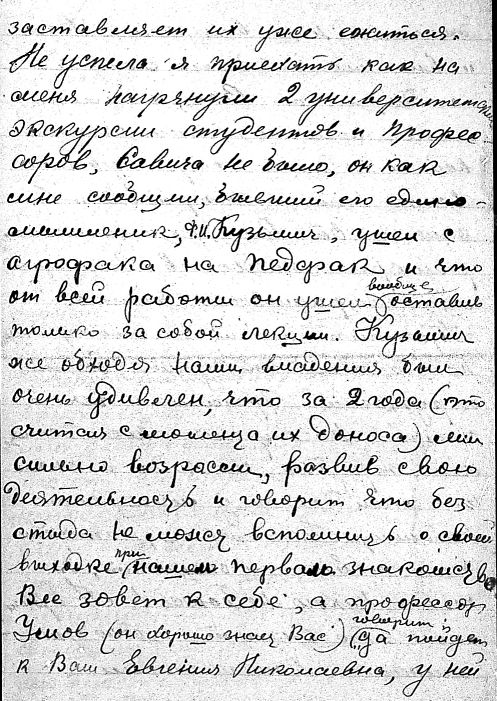 заставляет их уже ежиться.
Не успела я приехать как на
меня нагрянули 2 университетские
экскурсии студентов и профес-
соров, Савича не было, он как
мне сообщил, бывший его едино-
мышленик, Ф.И. Кузьмич, ушел с
агрофака на Педфак и что
от всей работы он ушел вообще оставив
только за собой лекции. Кузьмич
же обходя наши владения был
очень удивлен, что за 2 года (это
считая с момента их доноса) мы
сильно возрасли, развив свою
деятельность и говорит что без
стыда не может вспомнить о своей
выходке при нашем первом знакомстве
Все зовет к себе, а профессор
Умов (он хорошо знает Вас) говорит: "да пойдет
к Вам Евгения Николаевна, у ней